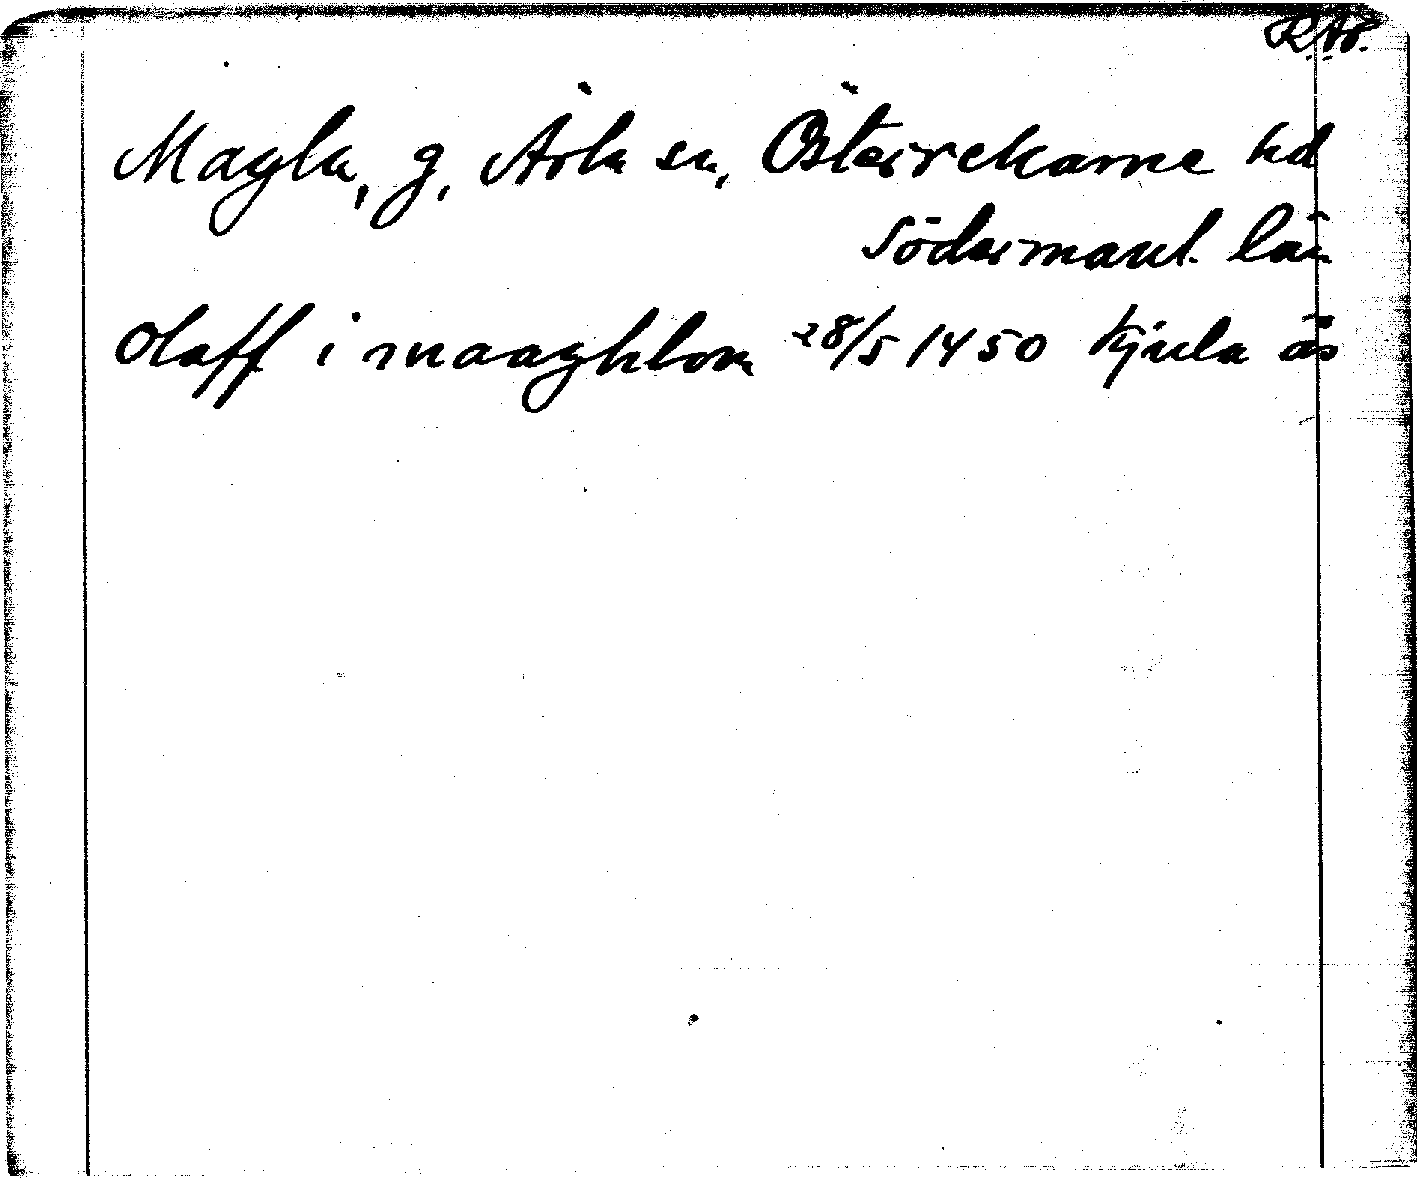 RAp.
Magla, g, Ärla sn, Österrekarne hd
Södermanl. län
Olaff i maaghlom 28/5 1450 Kjula ås